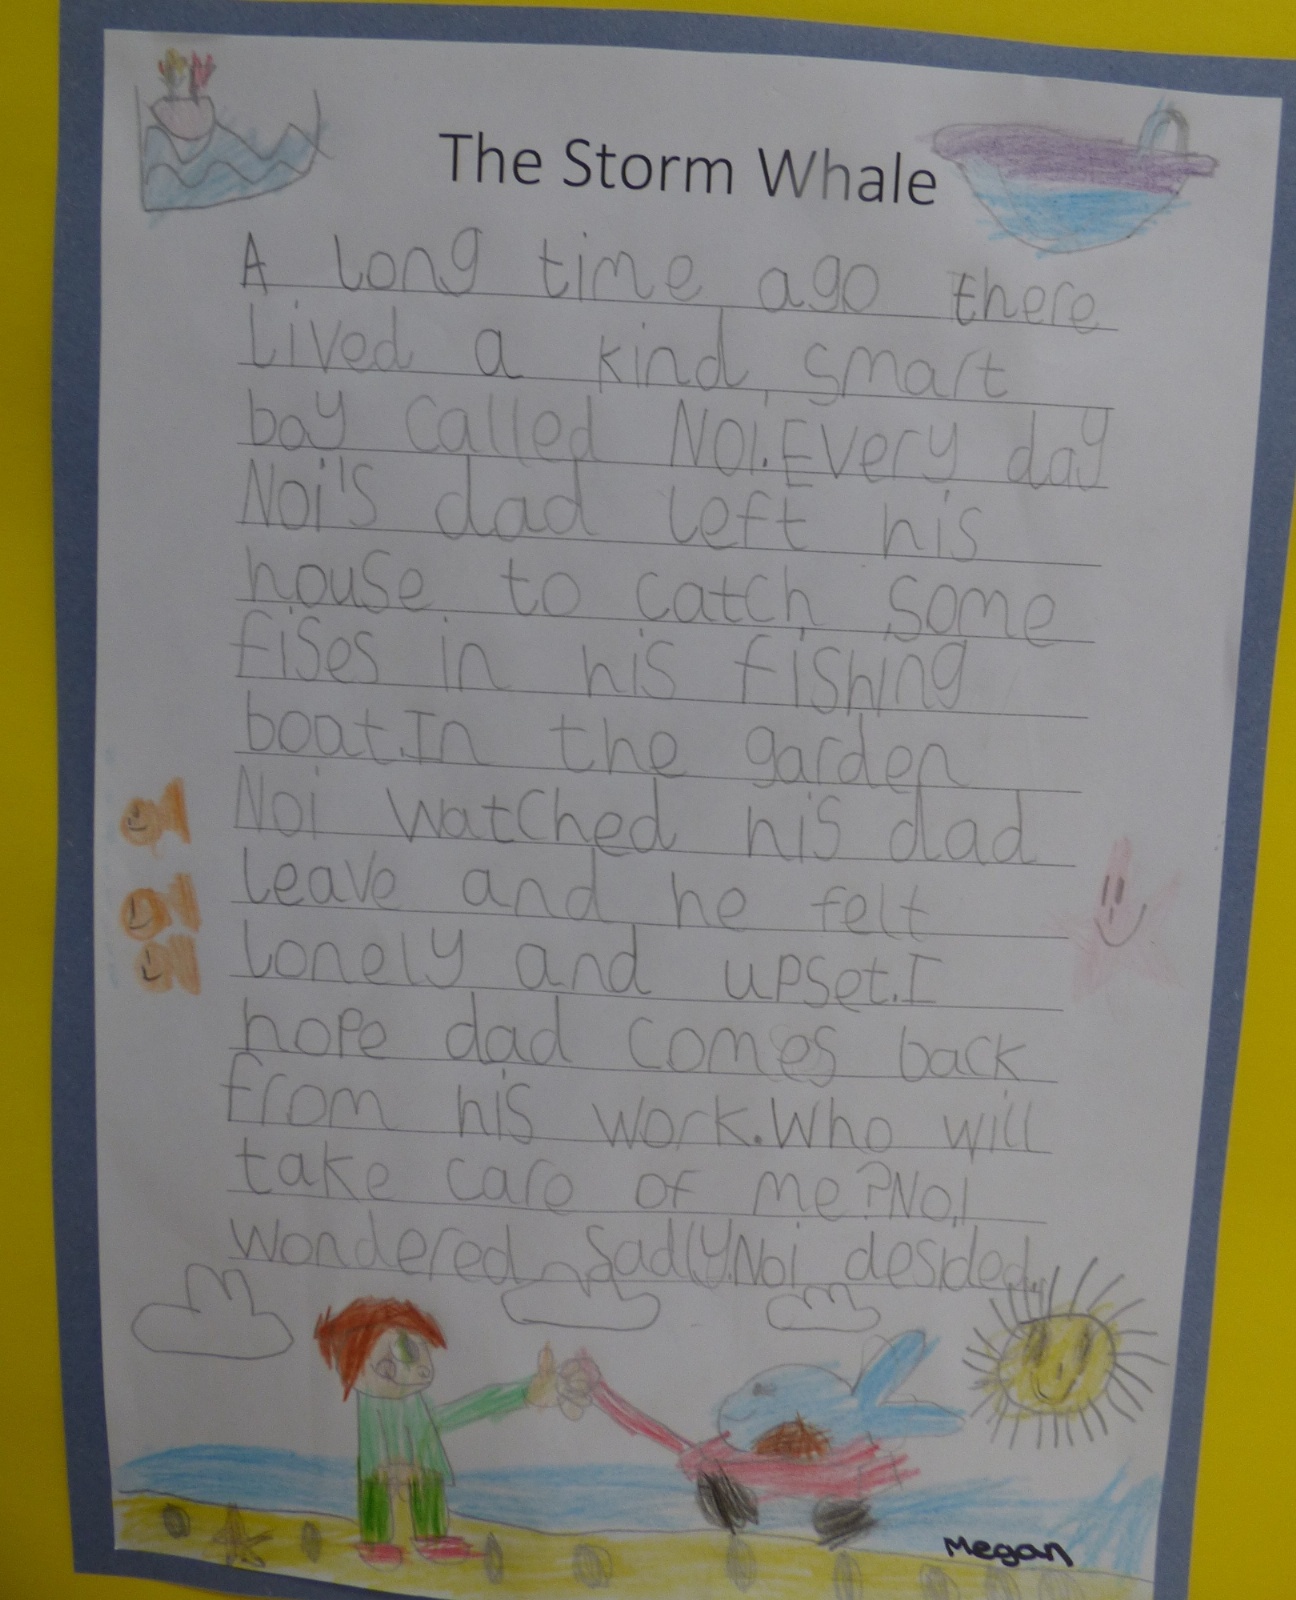 The Storm Whale
A long time ago there
Lived a kind, smart
boy called Noi. Every day
Noi's dad left his
house to catch some
fises in his fishing
boat. In the garden
Noi watched his dad
leave and he felt
lonely and upset. I
hope dad comes back
from his work. Who will
take care of me? Noi
wondered sadly. Noi desided
Megan